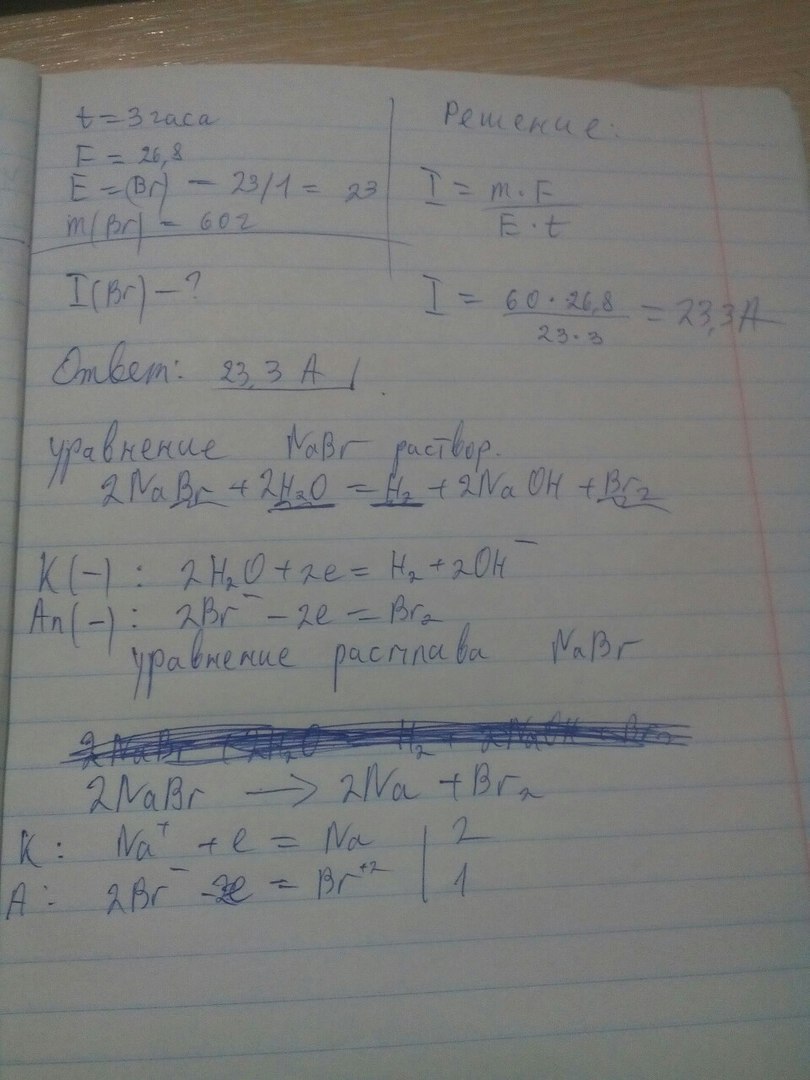 t = 3 часа
F = 26,8
E = (Br) - 23/1 = 23
m(Br) - 60г
I(Br) - ?
Решение:
I = m · F / E · t
I = 60 · 26,8 / 23 · 3 = 23,3 A
Ответ: 23,3 A
уравнение NaBr раствор.
2NaBr + 2H₂O = H₂ + 2NaOH + Br₂
K(-): 2H₂O + 2e = H₂ + 2OH⁻
An(-): 2Br⁻ - 2e = Br₂
уравнение расплава NaBr
2NaBr + 2H₂O = H₂ + 2NaOH + Br₂
2NaBr → 2Na + Br₂
K: Na⁺ + e = Na | 2
A: 2Br⁻ - 2e = Br⁺² | 1